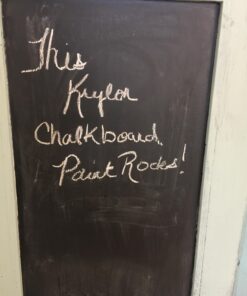 This
Krylon
Chalkboard
Paint Rocks!